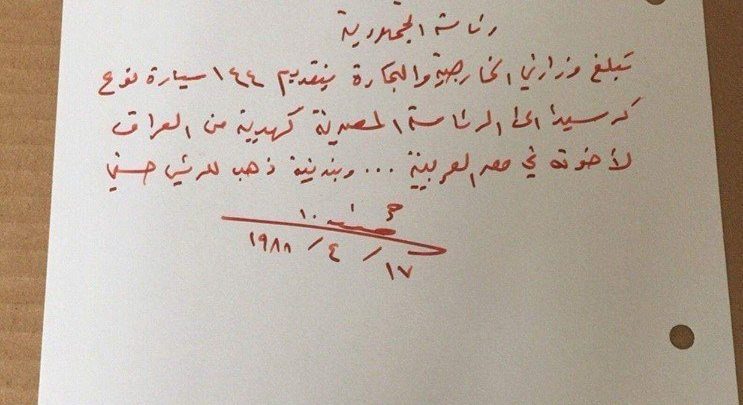 رئاسة الجمهورية
تبلغ وزارتي الخارجية والتجارة بتقديم ١٤٤ سيارة نوع
كرسيدا الى الرئاسة المصرية كهدية من العراق
لأخوته في مصر العربية ... وبندقية ذهب للرئيس حسني
١٧ / ٤ / ١٩٨٨